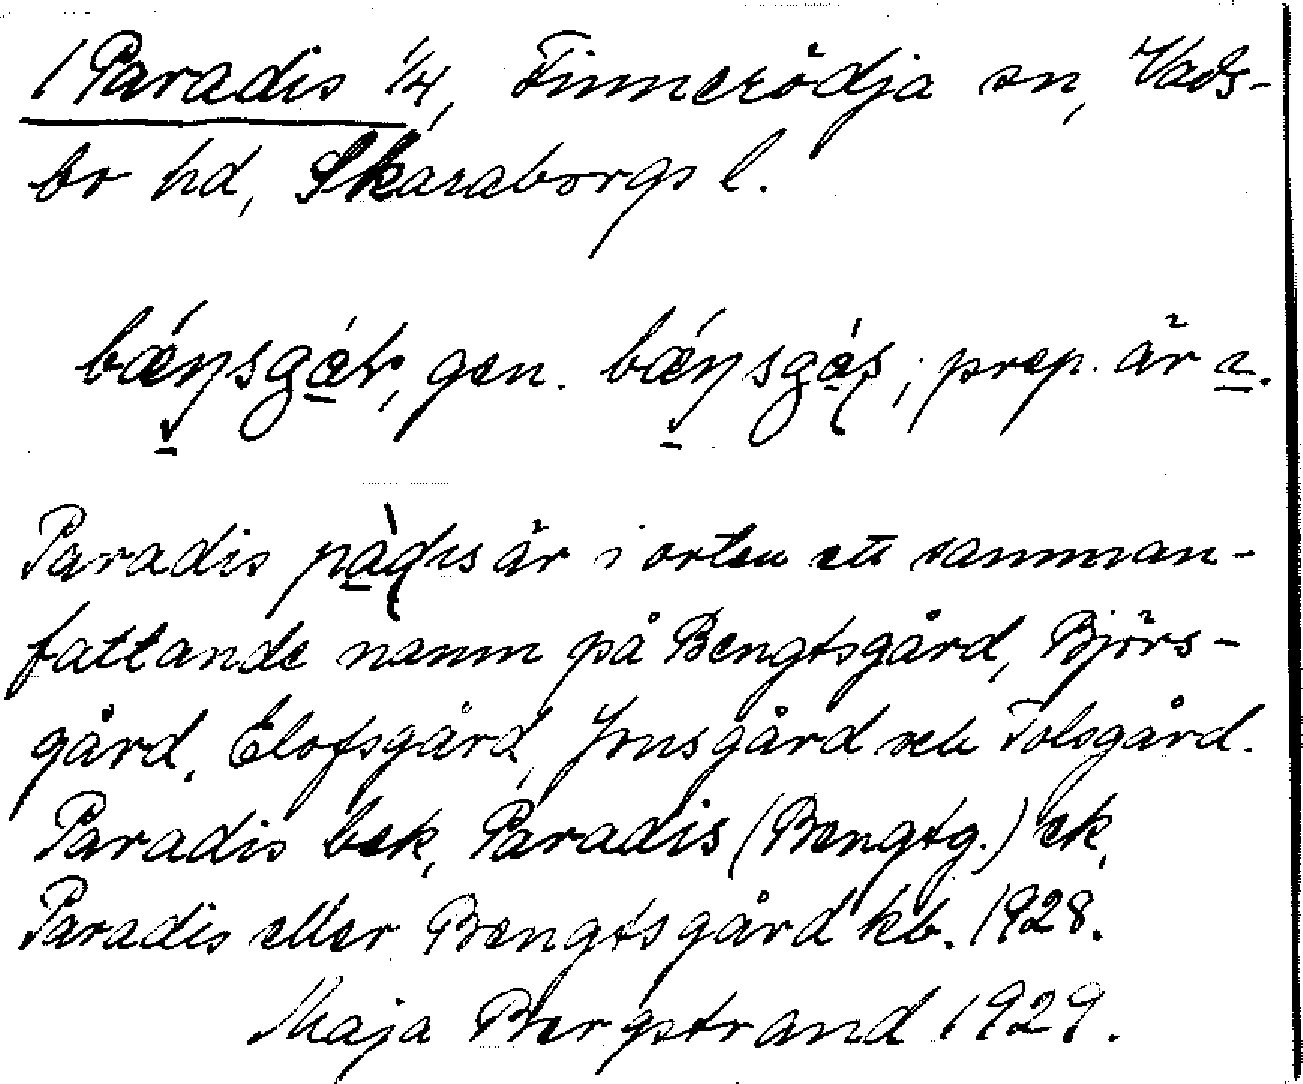 1 Paradis 1/4, Finnerödja sn, Vads-
bo hd, Skaraborgs l.
gen. prep. är
Paradis är i orten ett samman-
fattande namn på Bengtsgård, Björs-
gård, Elofsgård, Jonsgård och Tolsgård.
Paradis bek, Paradis (Bengtg.) ek,
Paradis eller Bengtsgård kb. 1928.
Maja Bergstrand 1929.